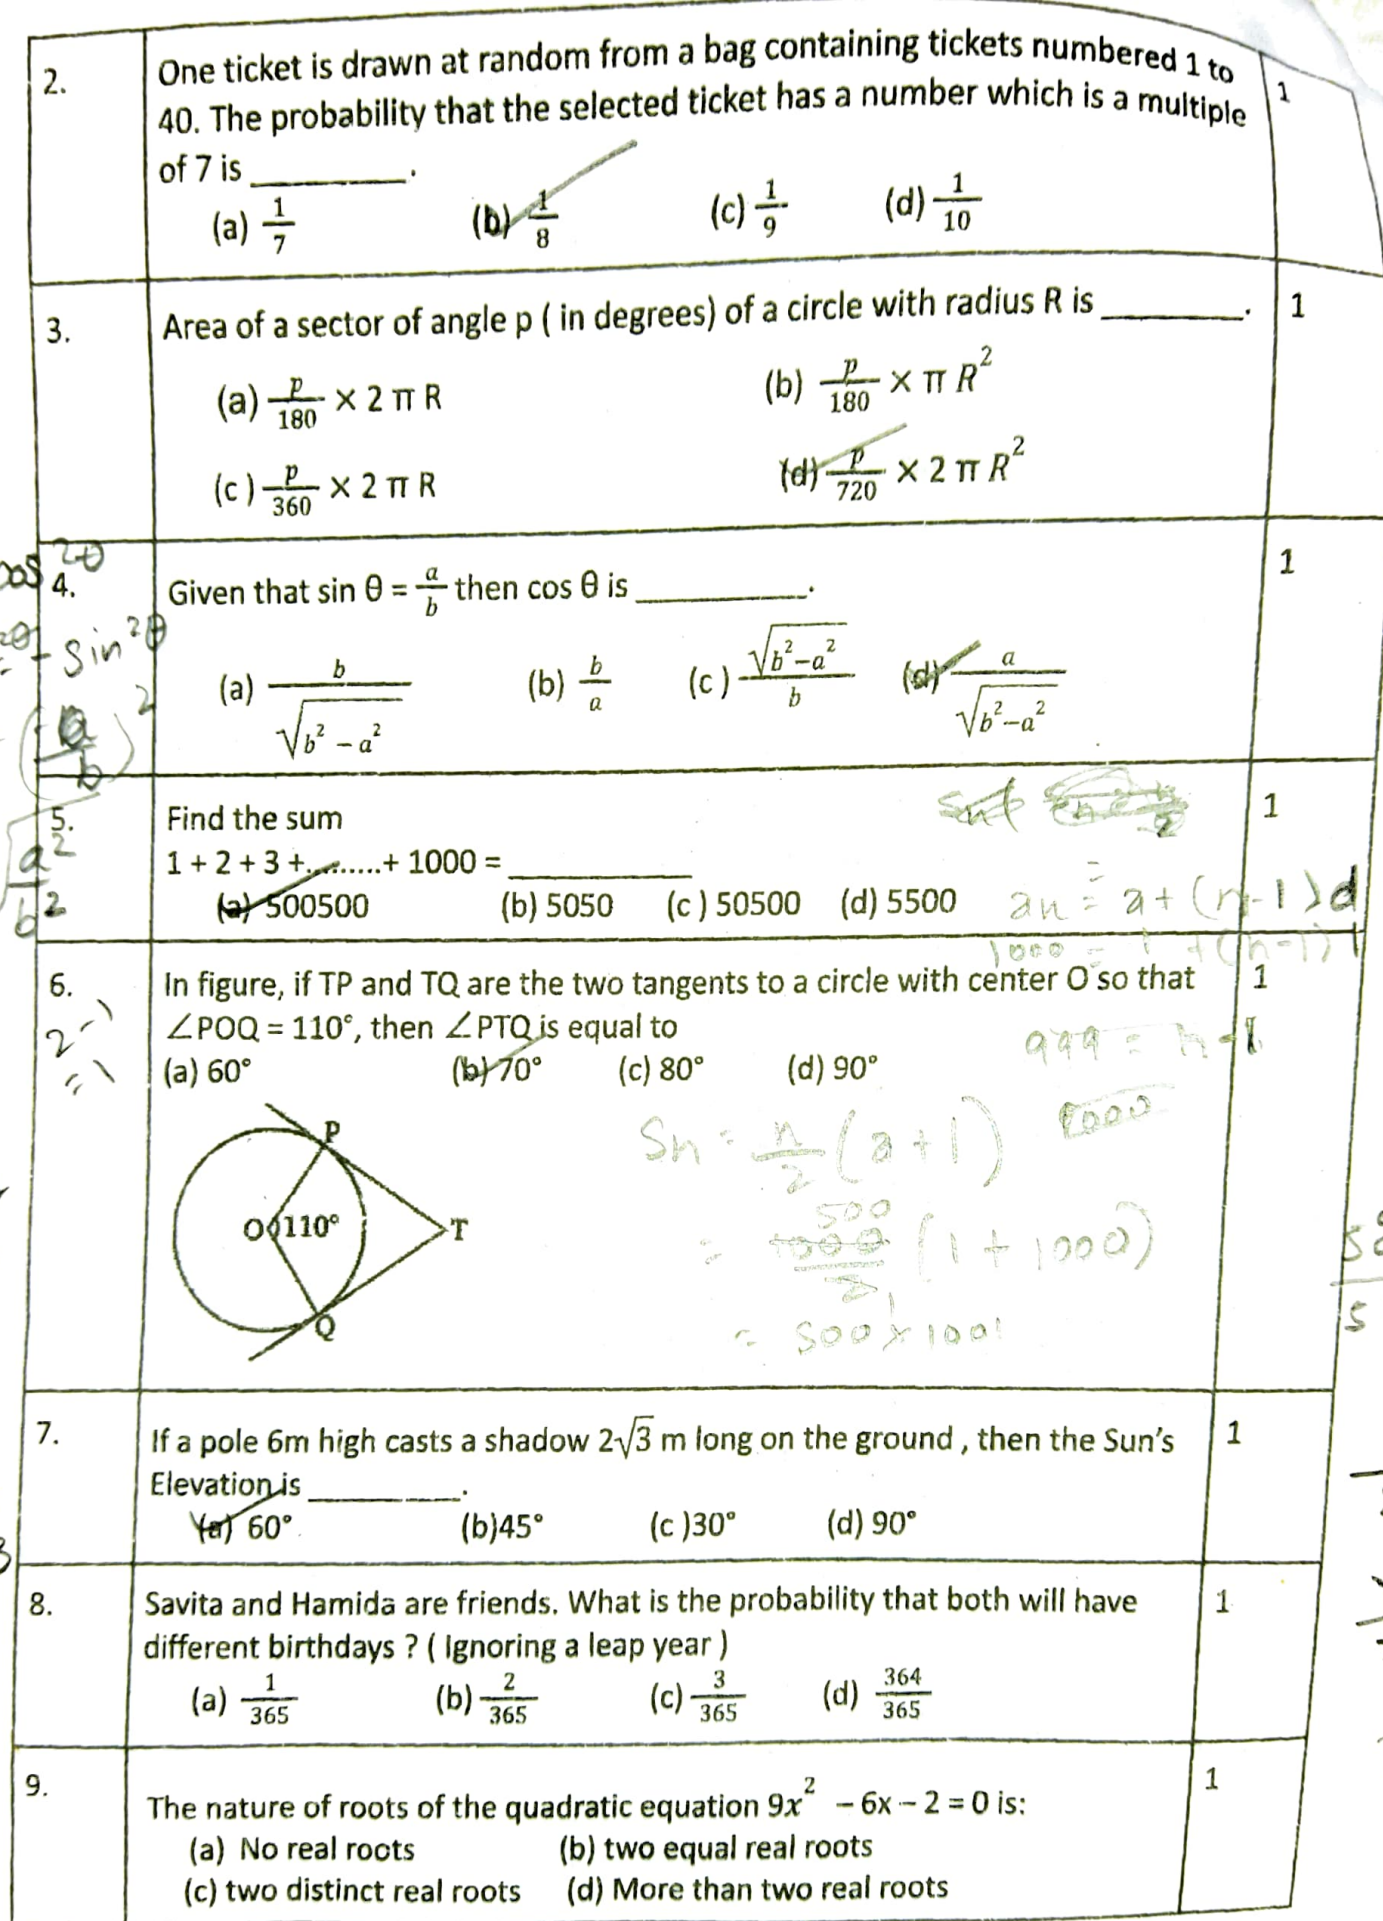 2.
One ticket is drawn at random from a bag containing tickets numbered 1 to
40. The probability that the selected ticket has a number which is a multiple
of 7 is __________.
1
(a) 1/7 (b) 1/8 (c) 1/9 (d) 1/10
3.
Area of a sector of angle p ( in degrees) of a circle with radius R is __________.
1
(a) p/180 × 2 π R (b) p/180 × π R²
(c ) p/360 × 2 π R (d) p/720 × 2 π R²
cos²θ
4.
Given that sin θ = a/b then cos θ is __________.
1
- sin²θ
(a) b/√(b² – a²) (b) b/a (c ) √(b²–a²)/b (d) a/√(b²–a²)
(a/b)²
5.
Find the sum
1
1 + 2 + 3 +.........+ 1000 = __________
(a) 500500 (b) 5050 (c ) 50500 (d) 5500
a²/b²
an = a + (n-1)d
1000 = 1 + (n-1)1
6.
In figure, if TP and TQ are the two tangents to a circle with center O so that
1
∠POQ = 110°, then ∠PTQ is equal to
999 = n-1
(a) 60° (b) 70° (c) 80° (d) 90°
1000
P
Sn = n/2 (a + 1)
O 110° T
500
= 1000/2 (1 + 1000)
Q
= 500 × 1001
7.
If a pole 6m high casts a shadow 2√3 m long on the ground , then the Sun's
1
Elevation is __________.
(a) 60° (b)45° (c )30° (d) 90°
8.
Savita and Hamida are friends. What is the probability that both will have
1
different birthdays ? ( Ignoring a leap year )
(a) 1/365 (b) 2/365 (c) 3/365 (d) 364/365
9.
The nature of roots of the quadratic equation 9x² – 6x – 2 = 0 is:
1
(a) No real roots (b) two equal real roots
(c) two distinct real roots (d) More than two real roots